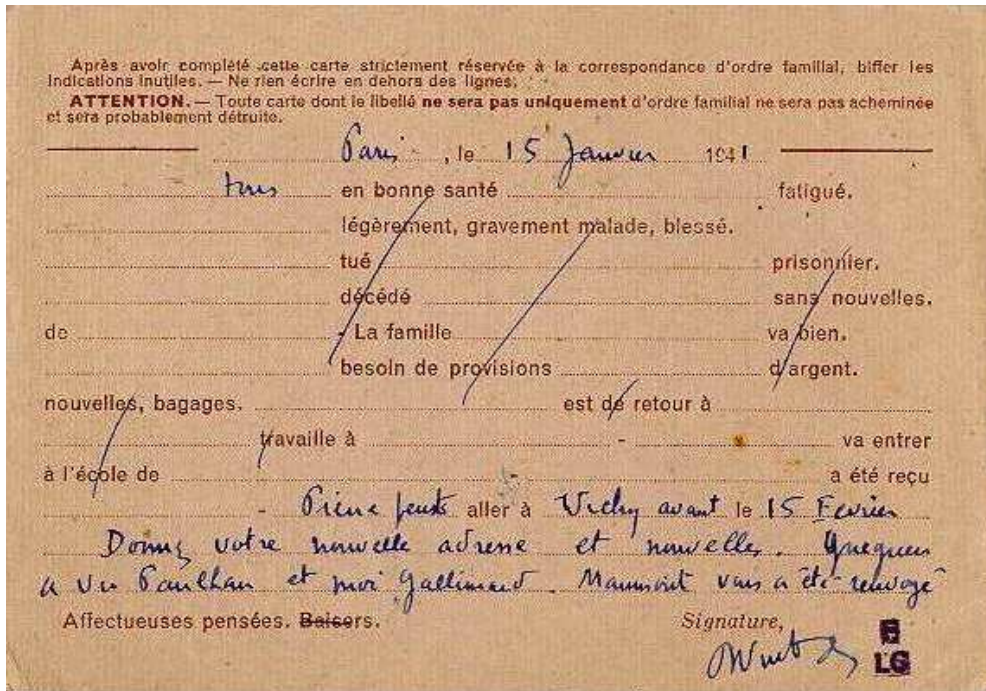 Après avoir complété cette carte strictement réservée à la correspondance d'ordre familial, biffer les
indications inutiles. — Ne rien écrire en dehors des lignes.
ATTENTION. — Toute carte dont le libellé ne sera pas uniquement d'ordre familial ne sera pas acheminée
et sera probablement détruite.
Paris, le 15 Janvier 1941
tous en bonne santé fatigué.
légèrement, gravement malade, blessé.
tué prisonnier.
décédé sans nouvelles.
de - La famille va bien.
besoin de provisions d'argent.
nouvelles, bagages. est de retour à
travaille à - va entrer
à l'école de - a été reçu
- Pierre aller à Vichy avant le 15 Fevrier
Donnez votre nouvelle adresse et nouvelles. Queguen
a vu Paulhan et moi Gallimard. Manuscrit vous a été renvoyé
Affectueuses pensées. Baisers. Signature,
LG